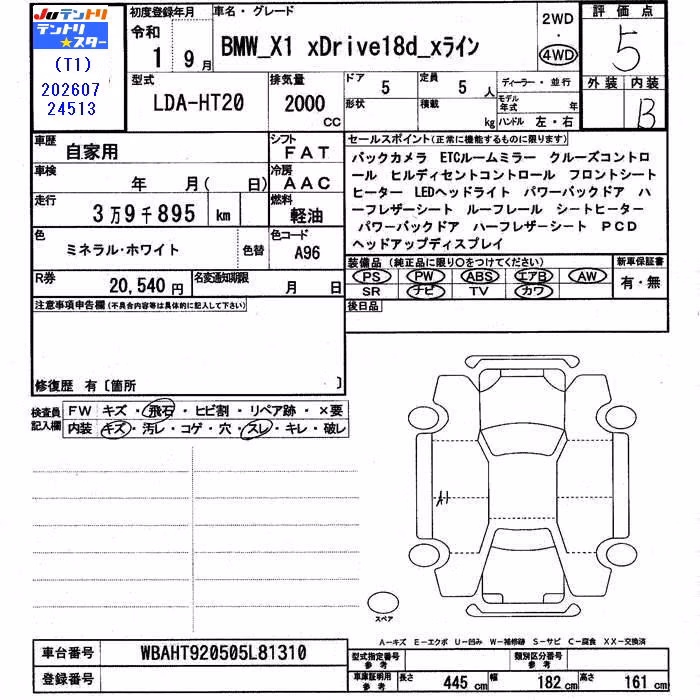 JUテントリ
テントリ★スター
(T1)
202607
24513
初度登録年月
令和
1 9月
車名・グレード
BMW_X1 xDrive18d_xライン
2WD
・
4WD
評価点
5
外装 内装
B
型式
LDA-HT20
排気量
2000
CC
ドア
5
定員
5人
形状
積載
kg
ディーラー・並行
モデル年式 年
ハンドル 左・右
車歴
自家用
シフト
FAT
車検
年 月( 日)
冷房
AAC
走行
3万9千895 km
燃料
軽油
色
ミネラル・ホワイト
色替
色コード
A96
R券
20,540円
名変通知期限
月 日
セールスポイント(正常に機能するものに限ります)
バックカメラ ETCルームミラー クルーズコントロ
ール ヒルディセントコントロール フロントシート
ヒーター LEDヘッドライト パワーバックドア ハ
ーフレザーシート ルーフレール シートヒーター
パワーバックドア ハーフレザーシート PCD
ヘッドアップディスプレイ
装備品(純正品に限り〇をつけてください)
PS PW ABS エアB AW
SR ナビ TV カワ
新車保証書
有・無
後日品
注意事項申告欄(不具合内容等は具体的に記入して下さい)
修復歴 有〔箇所 〕
検査員記入欄
FW キズ・飛石・ヒビ割・リペア跡・×要
内装 キズ・汚レ・コゲ・穴・スレ・キレ・破レ
A1
スペア
A-キズ E-エクボ U-凹み W-補修跡 S-サビ C-腐食 XX-交換済
車台番号
WBAHT920505L81310
登録番号
型式指定番号
参考
類別区分番号
参考
車庫証明用
参考
長さ 445cm 幅 182cm 高さ 161cm